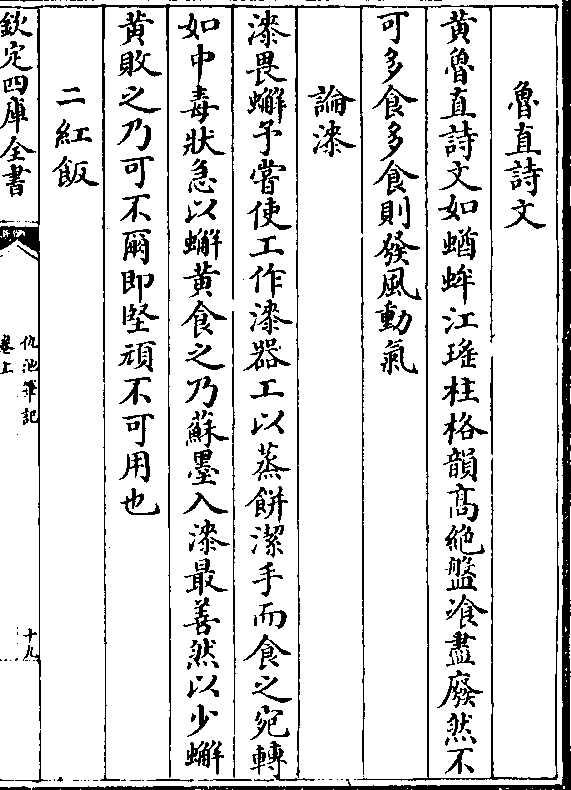 魯直詩文
黄魯直詩文如蝤蛑江瑤柱格韻高絶盤飡盡廢然不
可多食多食則發風動氣
論漆
漆畏蠏予嘗使工作漆器工以蒸餅潔手而食之宛轉
如中毒狀急以蠏黄食之乃蘇墨入漆最善然以少蠏
黄敗之乃可不爾即堅頑不可用也
二紅飯
欽定四庫全書
仇池筆記
卷上
十九